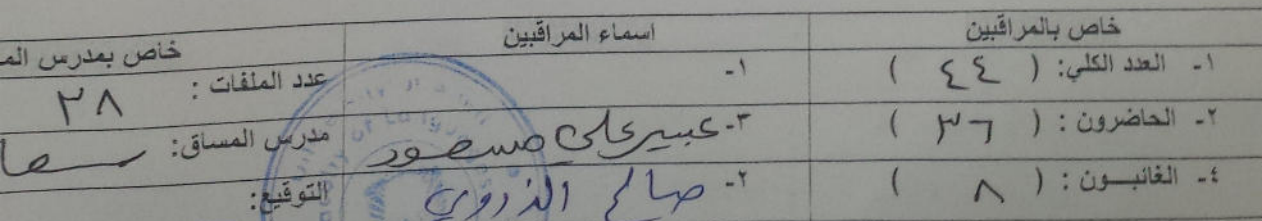 خاص بالمراقبين اسماء المراقبين خاص بمدرس
١- العدد الكلي: ( ٤٤ ) ١- عدد الملفات : ٣٨
٢- الحاضرون : ( ٣٦ ) ٣- عبير علي مسعود مدرس المساق:
٤- الغائبـــون : ( ٨ ) ٢- صالح التوقيع:
of Languages